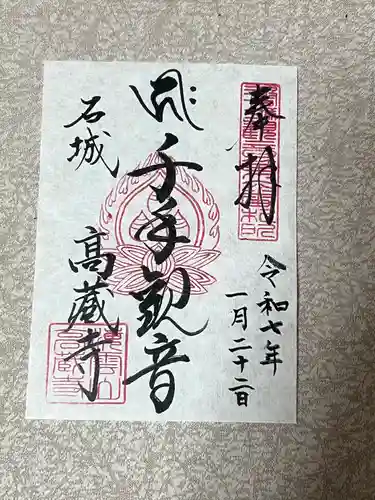 奉拝
令和七年
一月二十二日
千手観音
石城
高蔵寺